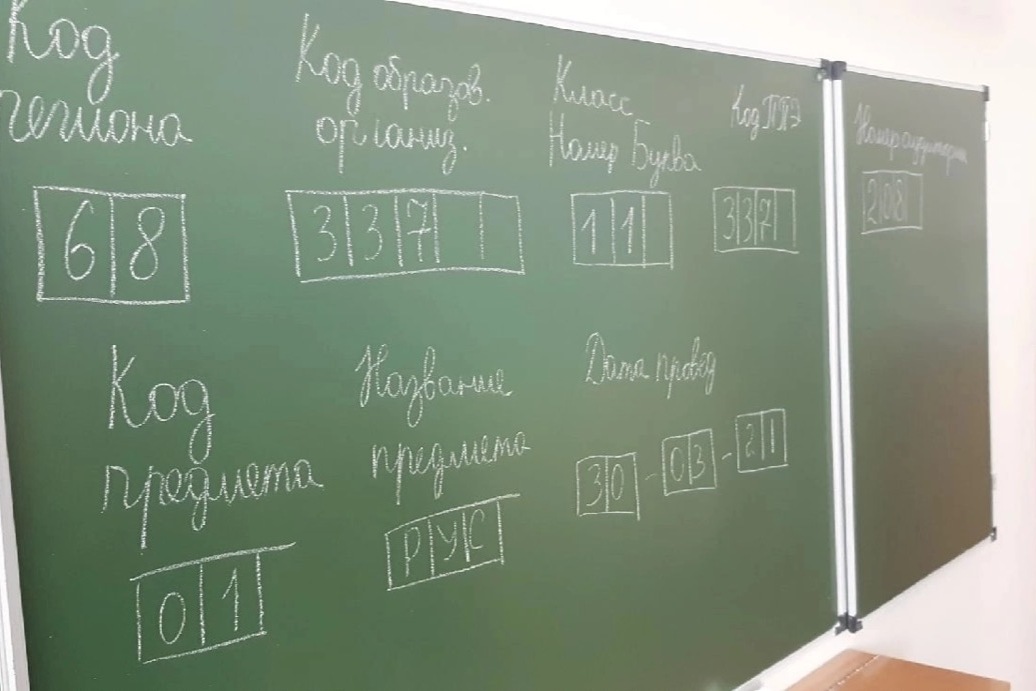 Код региона
68
Код образов. организ.
337
Класс
Номер Буква
11
Код ППЭ
337
Номер аудитории
208
Код предмета
01
Название предмета
РУС
Дата провед
30-03-21